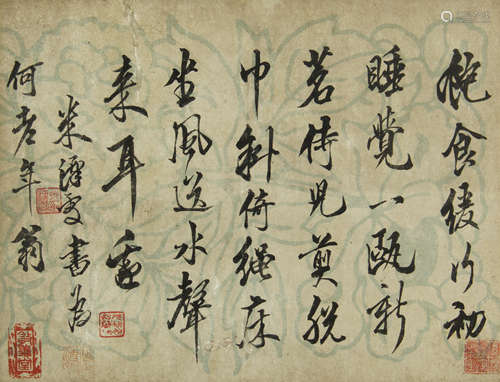 飽食緩行初
睡覺一甌新
茗侍兒煎脫
巾斜倚繩床
坐風送水聲
來耳邊
米漢雯書為
何老年翁